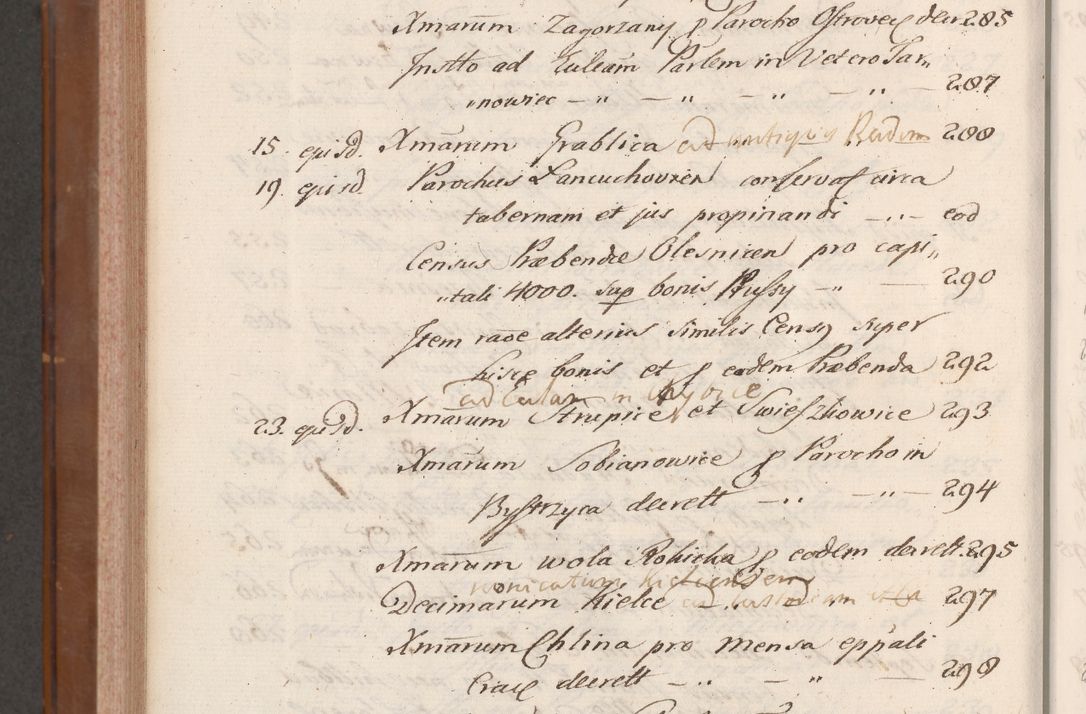 Xmarum Zagorzany p Parocho Ostrovec decr 285
Instto ad Eccleam Parlem in Vetero Tar„
„nowiec — „ — „ — „ — „ — 287
15. ejusd. Xmarum Grablica ad antiq 288
19. ejusd. Parochus Lancuchovien conservas circa
tabernam et jus propinandi — „ — eod
Census Præbendæ Olesnicen pro capi„
„tali 4000. sup bonis Russy — „ — 290
Item raõe alterius similis Census super
hisce bonis et p eadem Præbenda 292
ad Eccleam in
23. ejusd. Xmarum Strupice et Swieszkowice 293
Xmarum Sobianowice p Parocho in
Bystrzyca decrett — „ — „ — 294
Xmarum Wola Rokicka p eodem decrett. 295
Decimarum Kielce 297
Xmarum Chlina pro mensa eppali
Crac decrett — „ — „ — 298